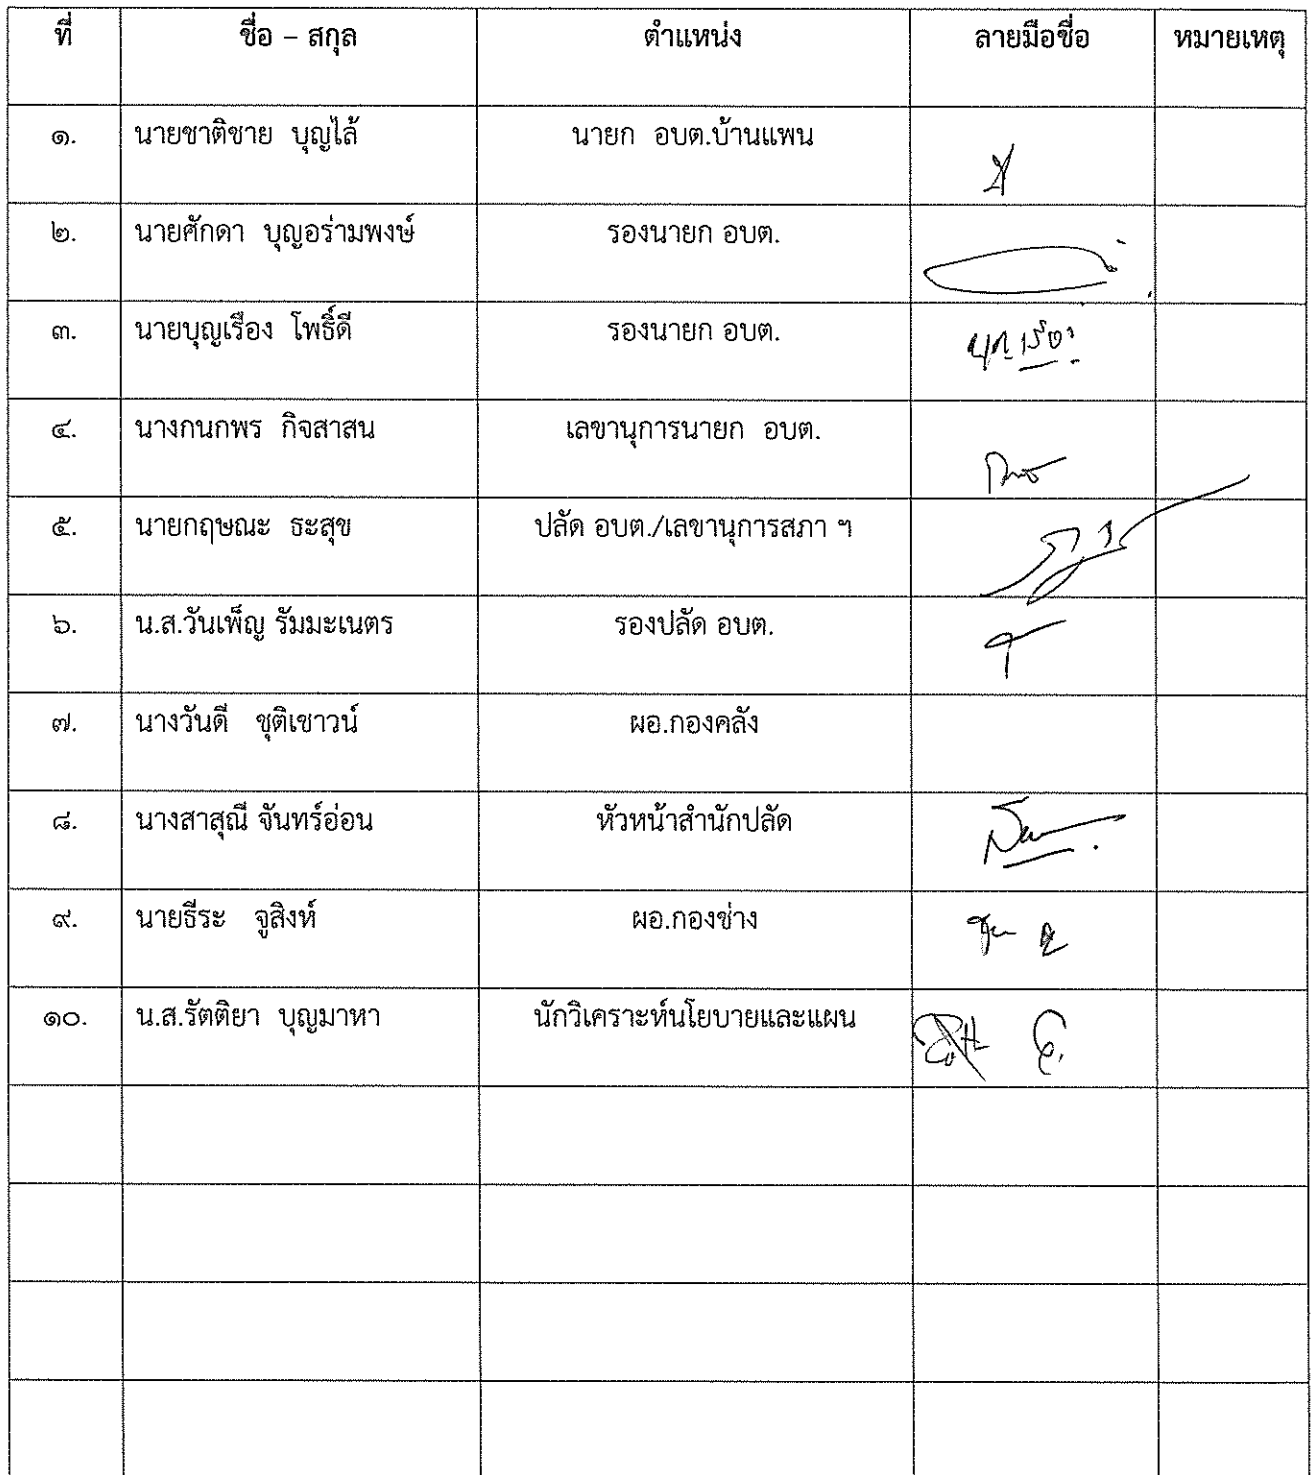 ที่ ชื่อ – สกุล ตำแหน่ง ลายมือชื่อ หมายเหตุ
๑. นายชาติชาย บุญไล้ นายก อบต.บ้านแพน
๒. นายศักดา บุญอร่ามพงษ์ รองนายก อบต.
๓. นายบุญเรือง โพธิ์ดี รองนายก อบต.
๔. นางกนกพร กิจสาสน เลขานุการนายก อบต.
๕. นายกฤษณะ ธะสุข ปลัด อบต./เลขานุการสภา ฯ
๖. น.ส.วันเพ็ญ รัมมะเนตร รองปลัด อบต.
๗. นางวันดี ชุติเชาวน์ ผอ.กองคลัง
๘. นางสาสุณี จันทร์อ่อน หัวหน้าสำนักปลัด
๙. นายธีระ จูสิงห์ ผอ.กองช่าง
๑๐. น.ส.รัตติยา บุญมาหา นักวิเคราะห์นโยบายและแผน